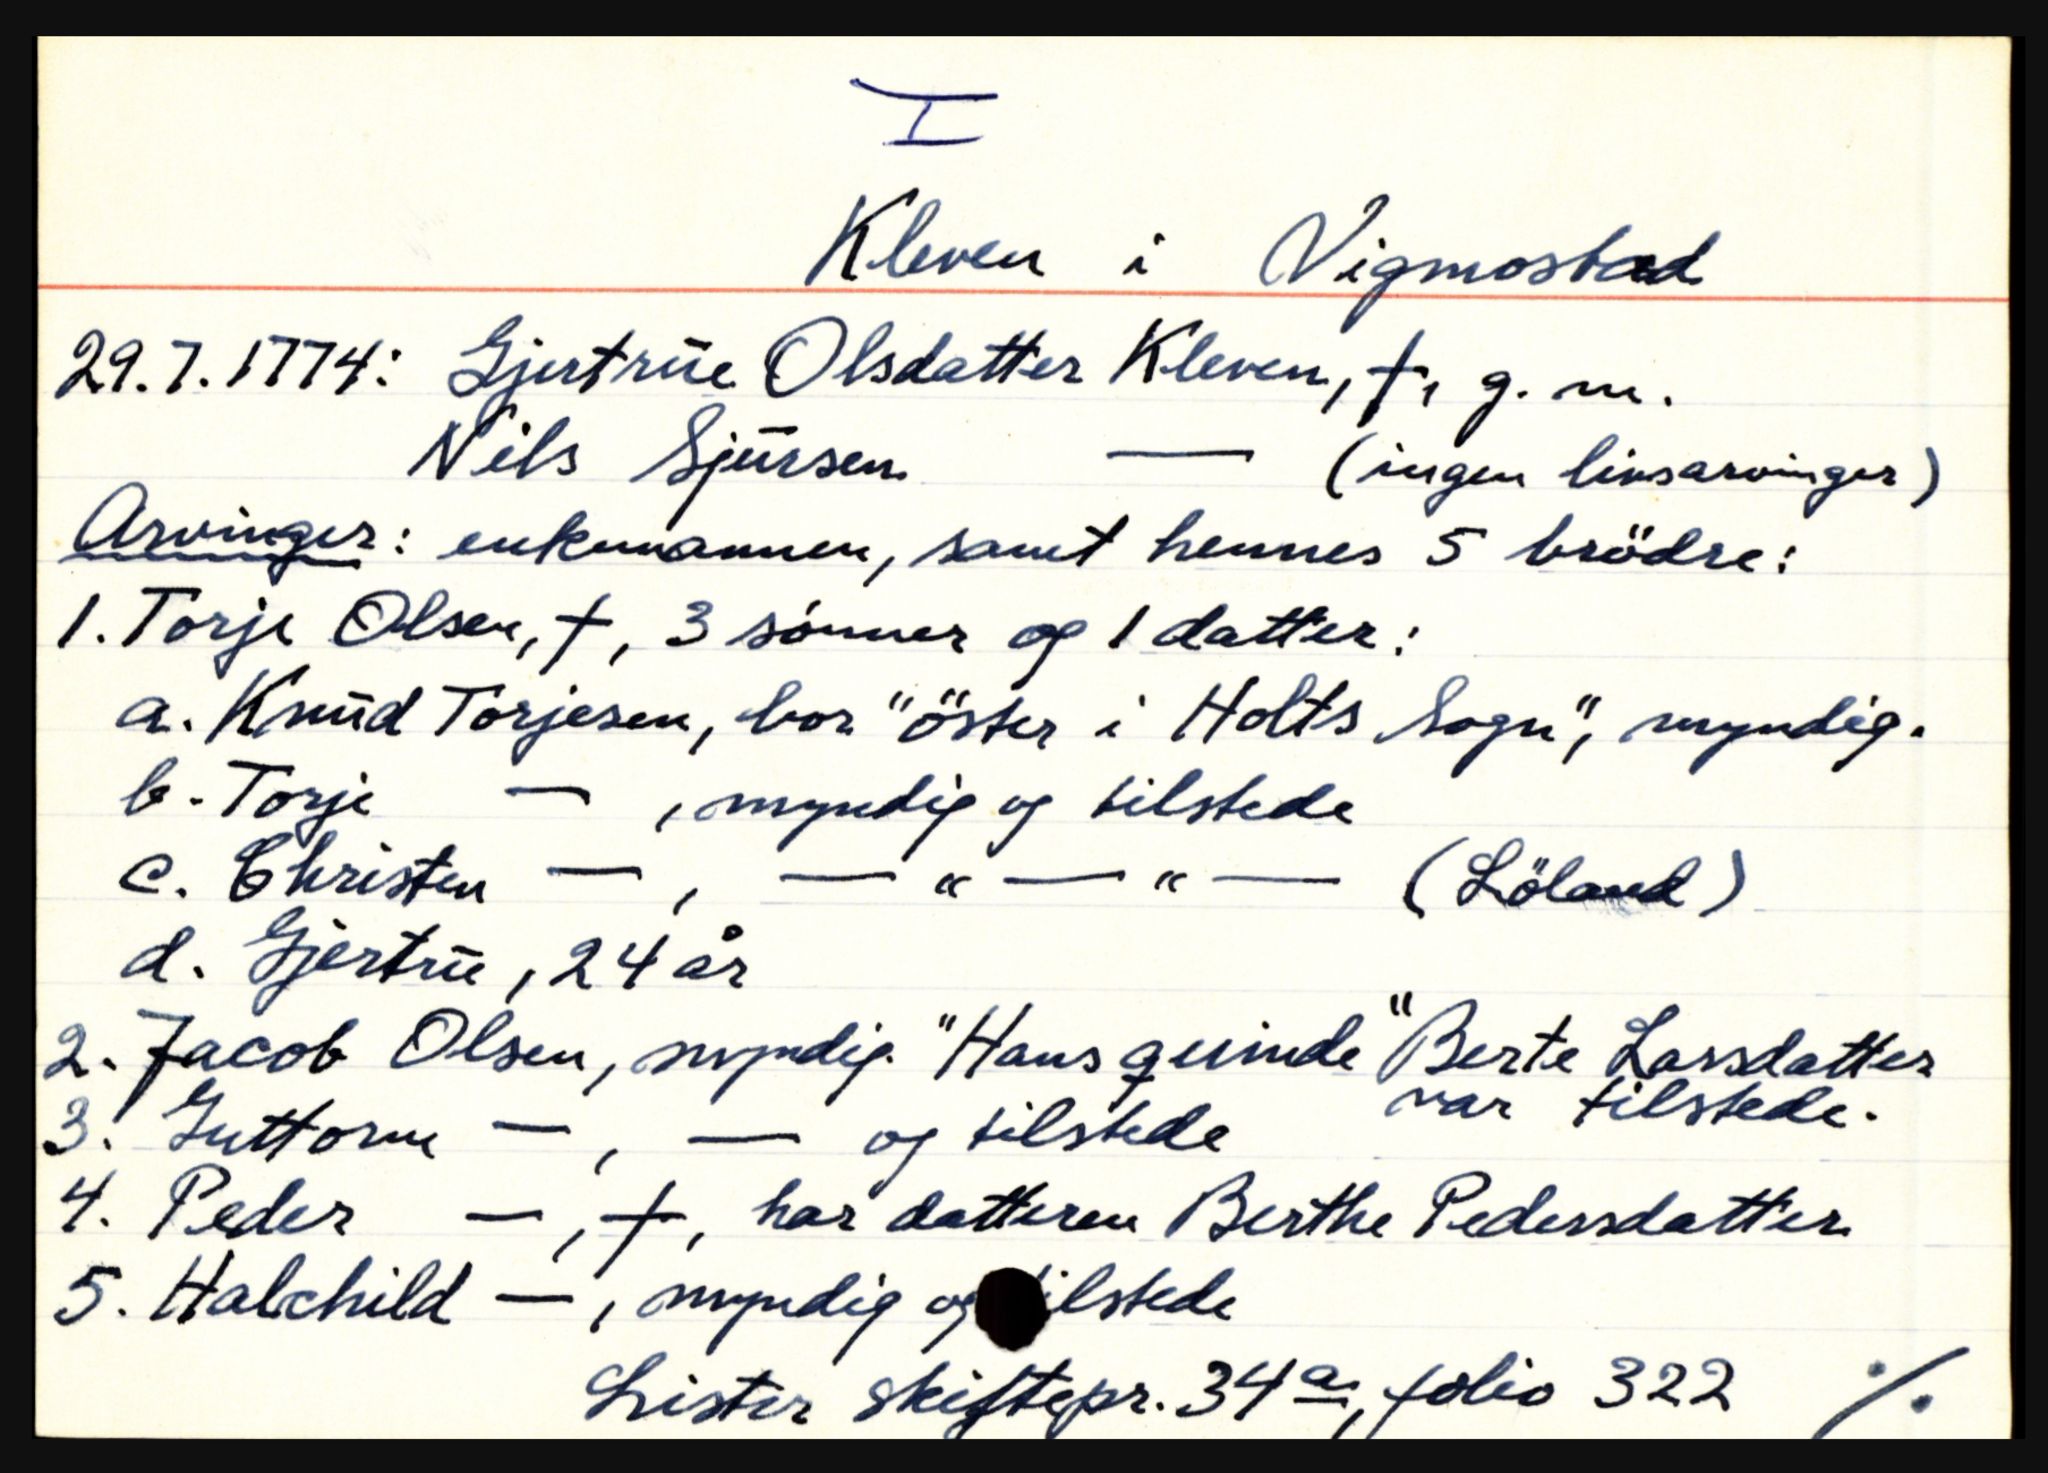 I
Kleven i Vigmostad
29.7.1774: Gjertrūe Olsdatter Kleven, †, g. m.
Nils Sjūrsen — (ingen livsarvinger)
Arvinger: enkemannen, samt hennes 5 brödre:
1. Torje Olsen, †, 3 sønner og 1 datter:
a. Knūd Torjesen, bor "öster i Holts Sogn", myndig.
b. Torje — , myndig og tilstede
c. Christen — , — " — " — (Löland)
d. Gjertrūe, 24 år
2. Jacob Olsen, myndig. "Hans qvinde" Berte Larsdatter
var tilstede.
3. Guttorm — , — og tilstede
4. Peder — , †, har datteren Berthe Pedersdatter
5. Halchild — , myndig og tilstede
Lister skiftepr. 34a, folio 322 ./.